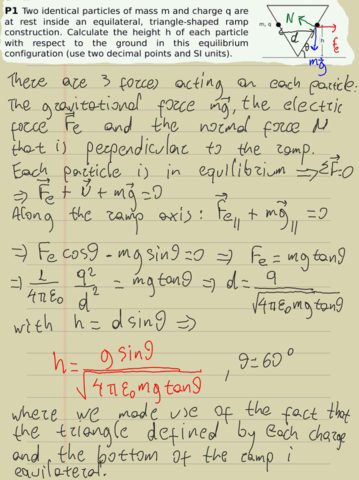 P1 Two identical particles of mass m and charge q are
at rest inside an equilateral, triangle-shaped ramp
construction. Calculate the height h of each particle
with respect to the ground in this equilibrium
configuration (use two decimal points and SI units).
m, q
N
d
h
θ
Fe
mg
There are 3 forces acting on each particle:
The gravitational force mg, the electric
force Fe and the normal force N
that is perpendicular to the ramp.
Each particle is in equilibrium ⇒ ΣF=0
⇒ Fe + N + mg = 0
Along the ramp axis: Fe|| + mg|| = 0
⇒ Fe cosθ - mg sinθ = 0 ⇒ Fe = mg tanθ
⇒ 1/(4πε0) q²/d² = mg tanθ ⇒ d = q/√(4πε0 mg tanθ)
with h = d sinθ ⇒
h = q sinθ/√(4πε0 mg tanθ) , θ = 60°
where we made use of the fact that
the triangle defined by each charge
and the bottom of the ramp i
equilateral.